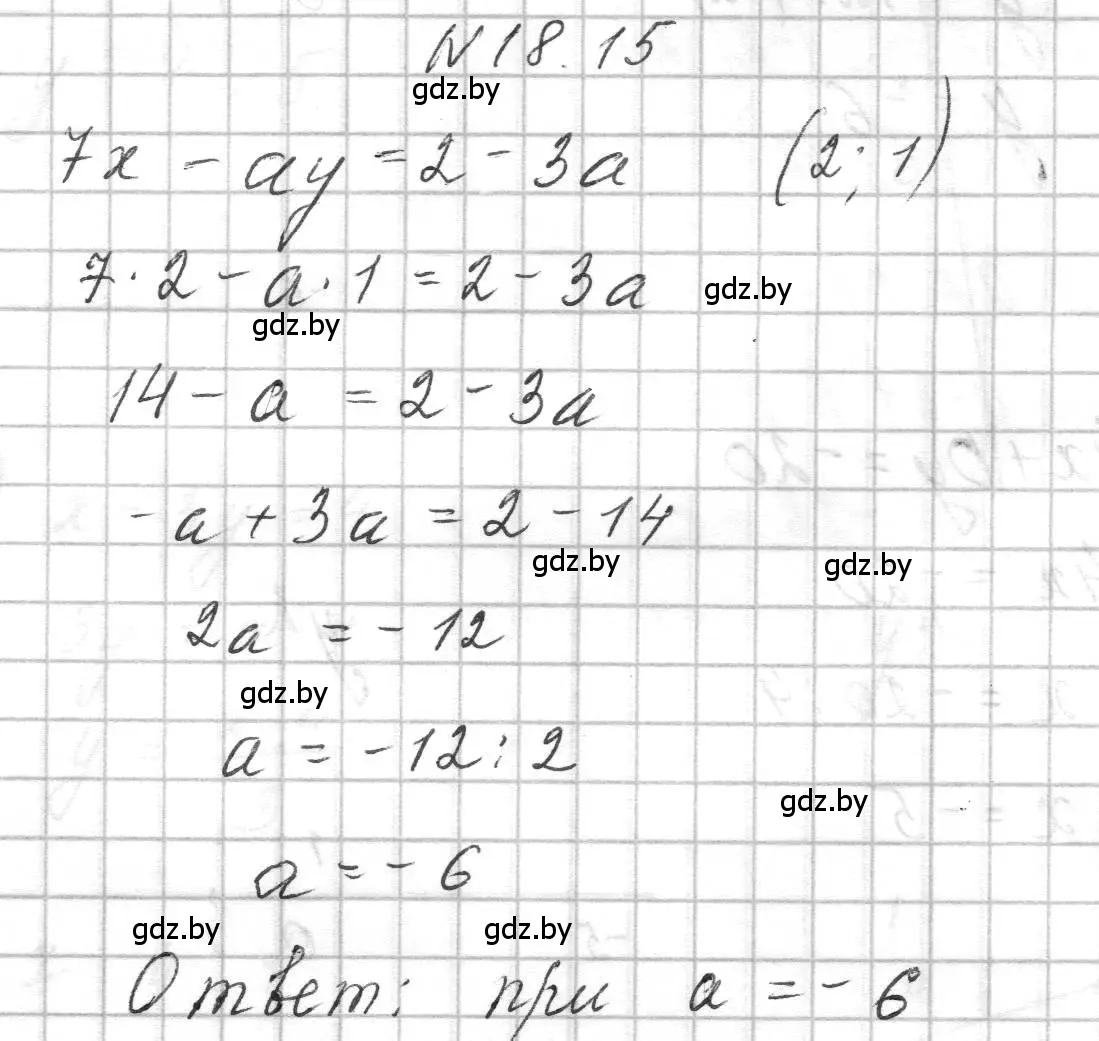 N 18.15
gdz.by
7x - ay = 2 - 3a (2; 1)
7 · 2 - a · 1 = 2 - 3a gdz.by
gdz.by
14 - a = 2 - 3a
- a + 3a = 2 - 14
gdz.by gdz.by
2a = - 12
gdz.by
a = - 12 : 2
gdz.by
a = - 6
gdz.by gdz.by
Ответ: при a = - 6